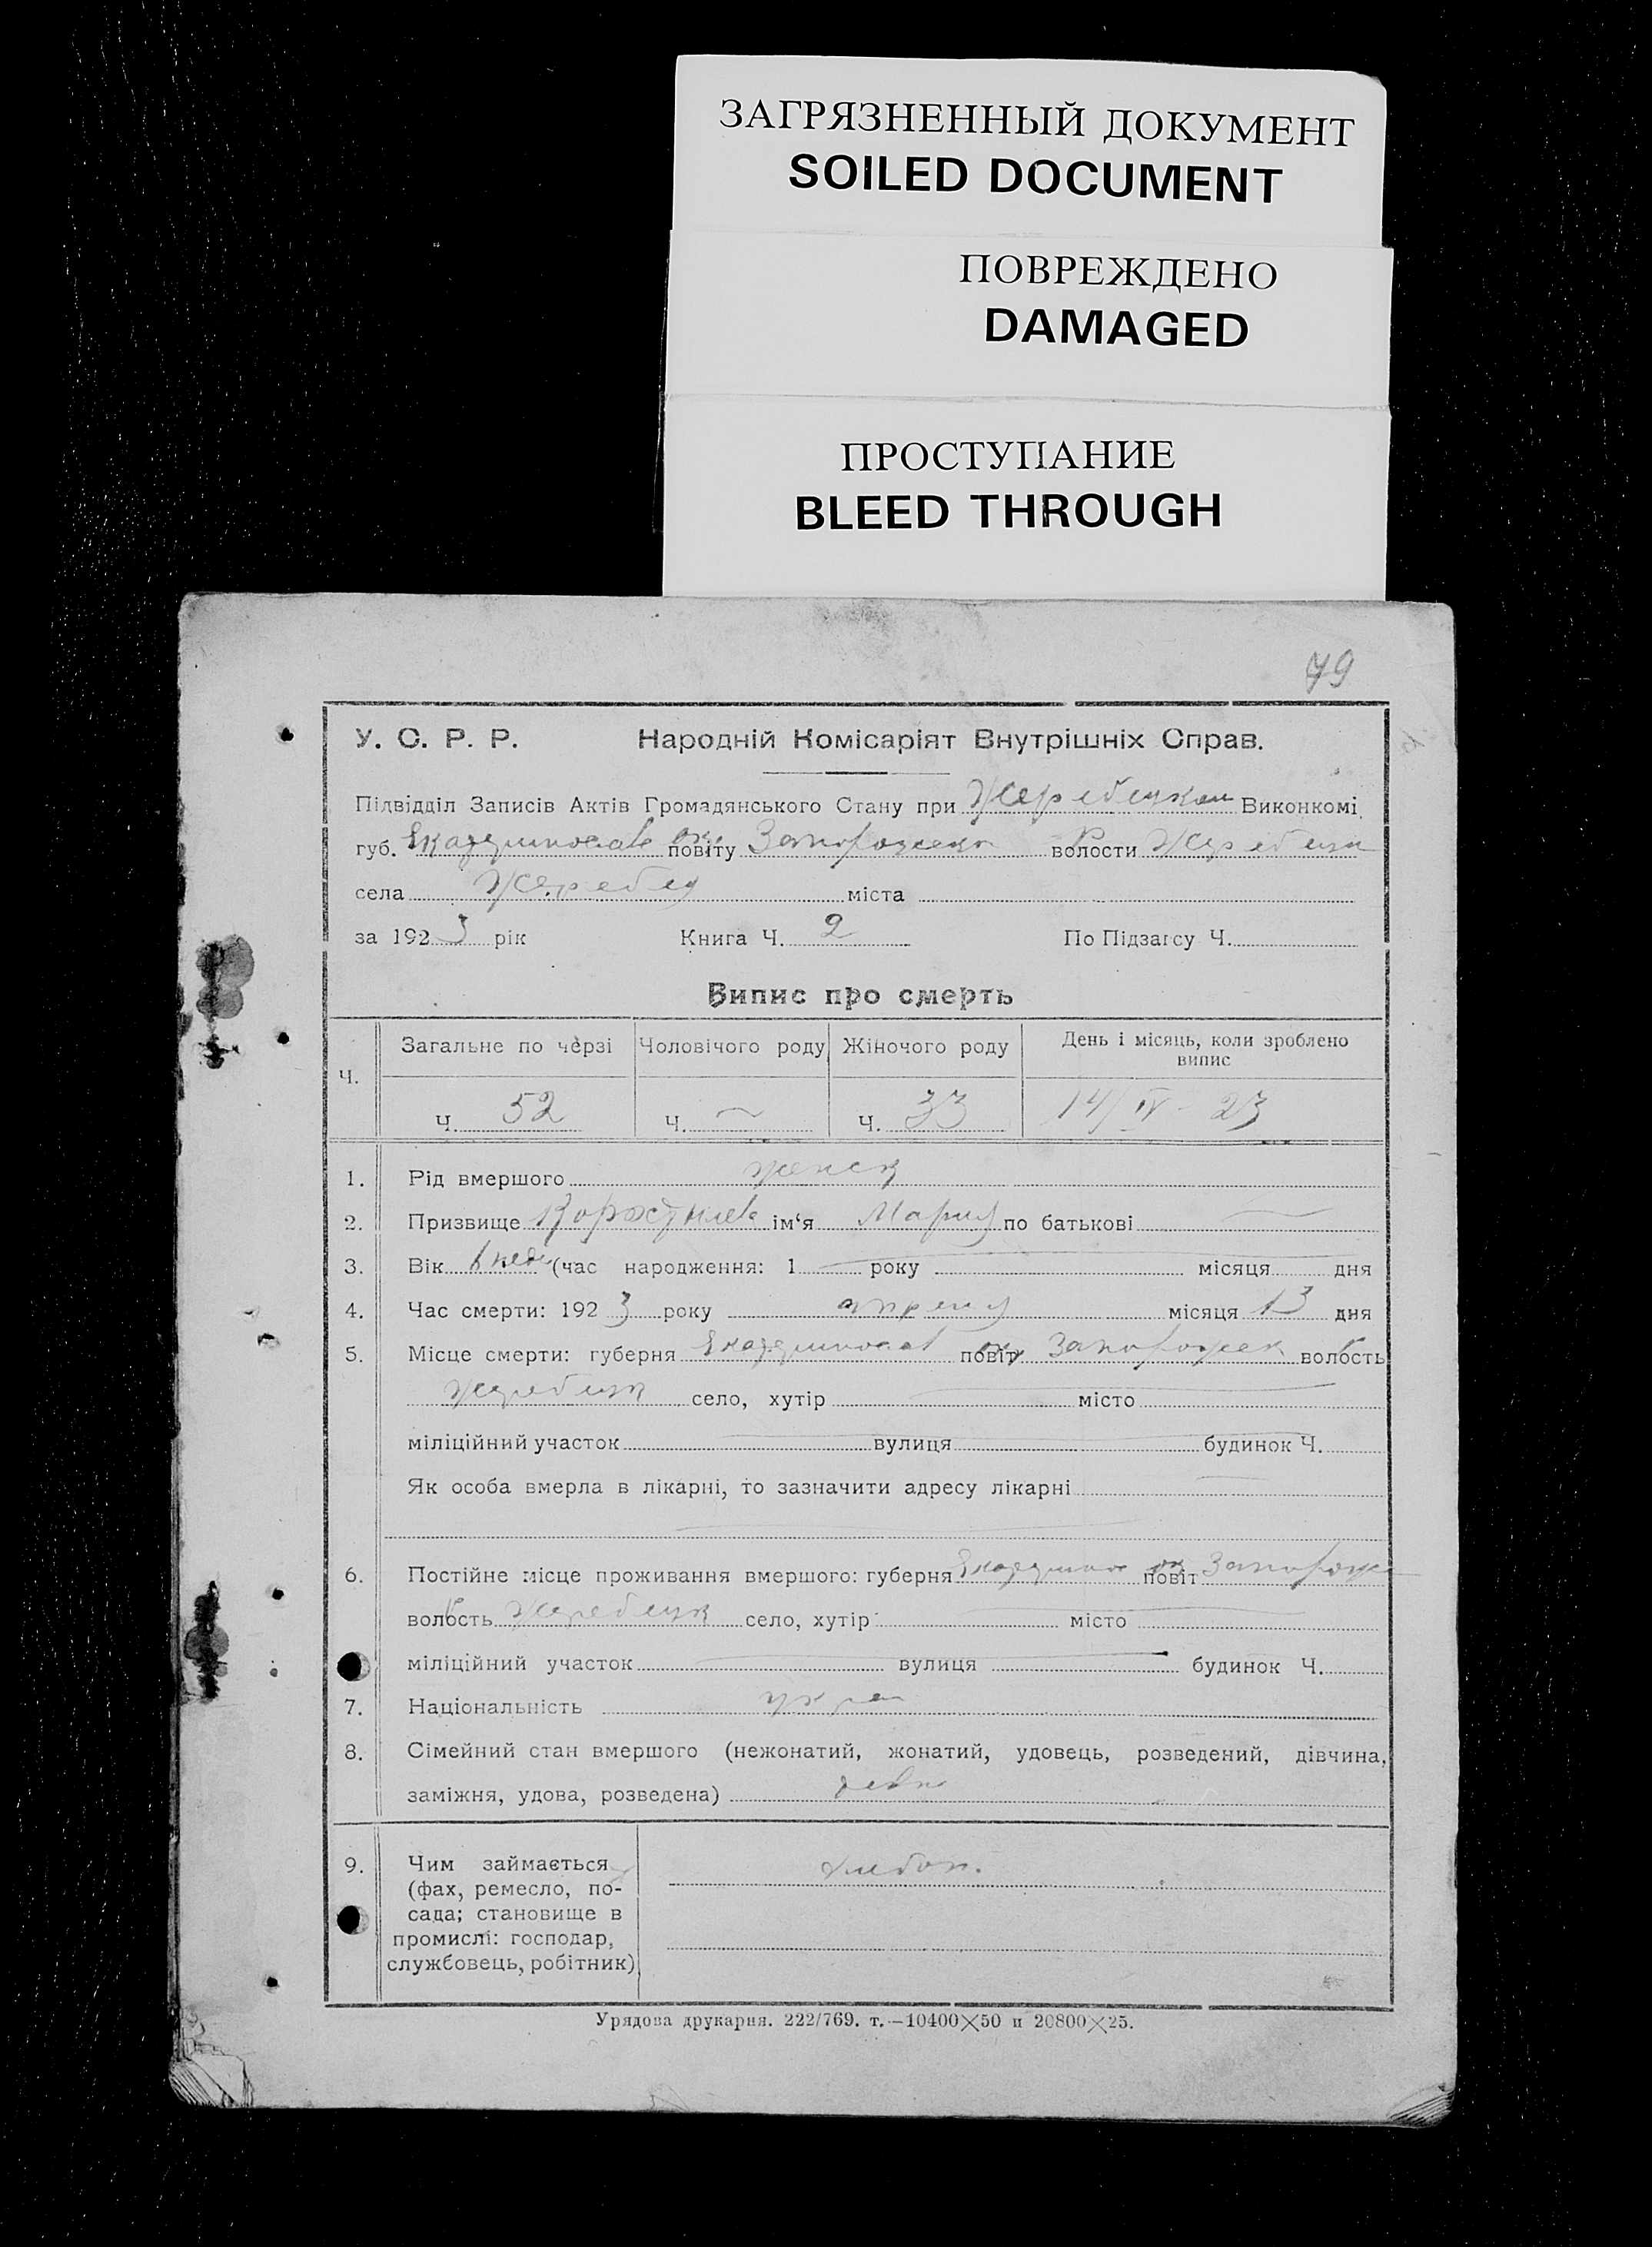 ЗАГРЯЗНЕННЫЙ ДОКУМЕНТ
SOILED DOCUMENT
ПОВРЕЖДЕНО
DAMAGED
ПРОСТУПАНИЕ
BLEED THROUGH
79
У. С. Р. Р. Народній Комісаріят Внутрішніх Справ.
Підвідділ Записів Актів Громадянського Стану при Жеребецком Виконкомі
губ. Екатериносла окр повіту Запорожск Р волости Жеребецк
села Жеребец міста
за 1923 рік Книга Ч. 2 По Підзагсу Ч.
Випис про смерть
Ч. Загальне по черзі Чоловічого роду Жіночого роду День і місяць, коли зроблено
випис
Ч. 52 Ч. — Ч. 33 14/IV - 23
1. Рід вмершого женск
2. Призвище ім'я Мария по батькові —
3. Вік (час народження: 1 — року — місяця дня
4. Час смерти: 1923 року апреля місяця 13 дня
5. Місце смерти: губерня Екатеринослав повіт Запорожск волость
Жеребецк село, хутір — місто —
міліційний участок — вулиця — будинок Ч.
Як особа вмерла в лікарні, то зазначити адресу лікарні —
6. Постійне місце проживання вмершого: губерня Екатерино повіт Запорож
волость Жеребецк село, хутір — місто —
міліційний участок — вулиця — будинок Ч.
7. Національність укра
8. Сімейний стан вмершого (нежонатий, жонатий, удовець, розведений, дівчина,
заміжня, удова, розведена) деви
9. Чим займається хлебоп.
(фах, ремесло, по-
сада; становище в
промислі: господар,
службовець, робітник)
Урядова друкарня. 222/769. т.—10400×50 и 20800×25.